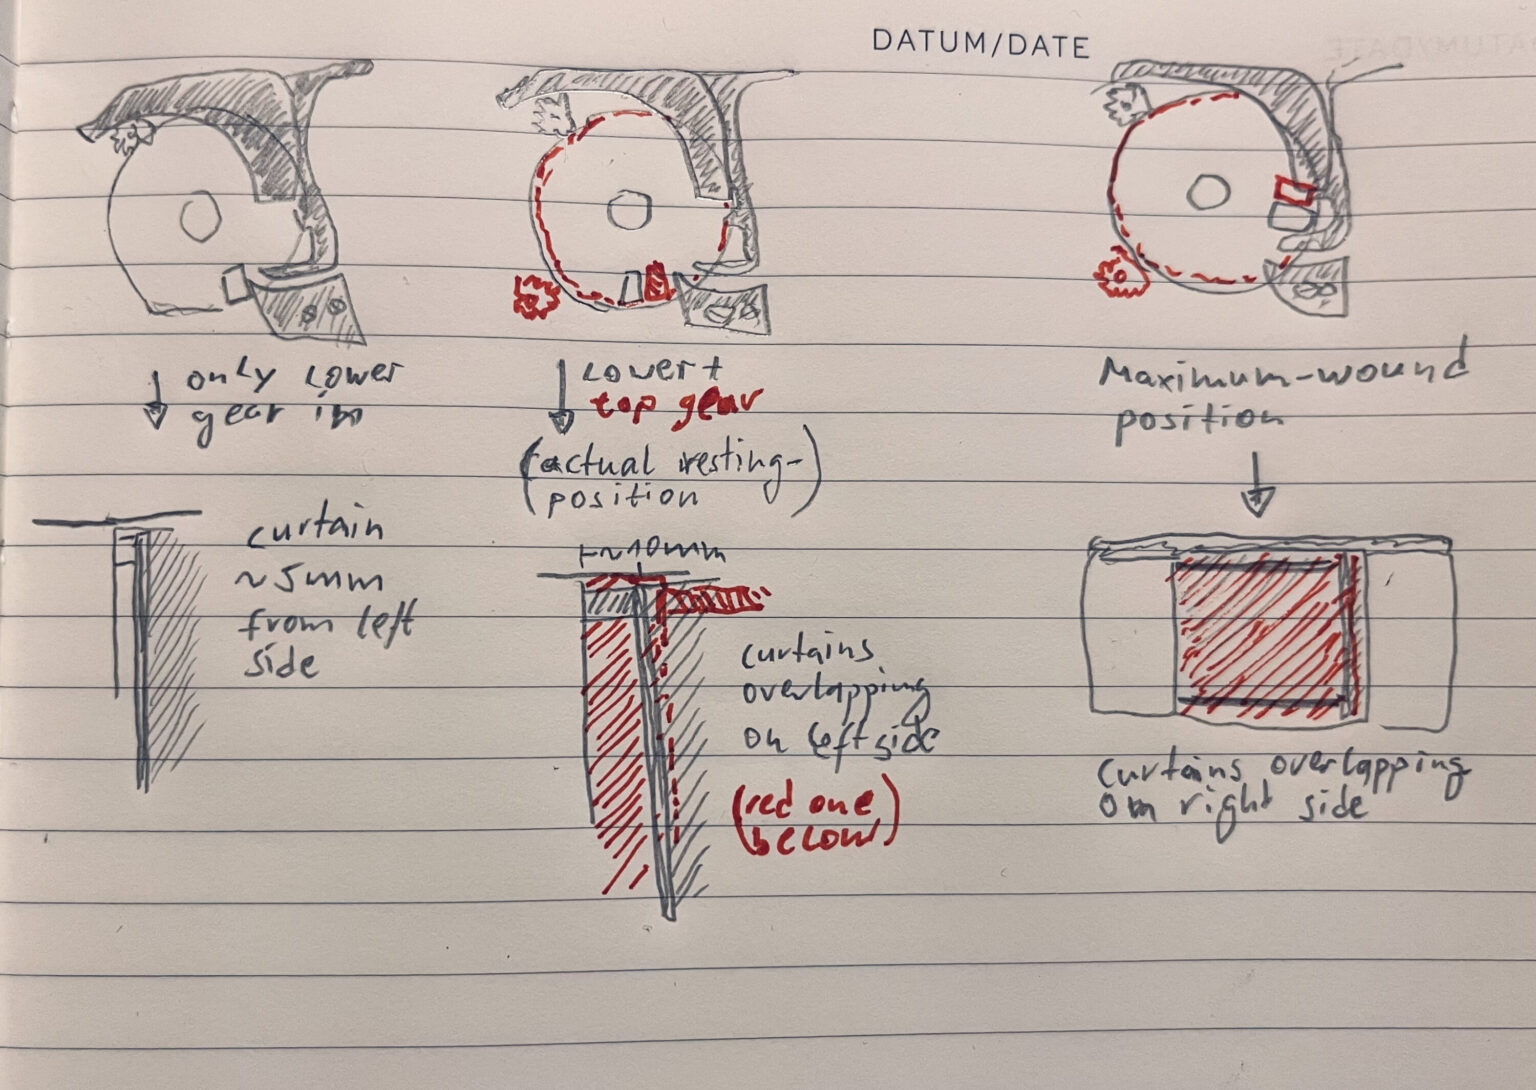 DATUM/DATE
only lower
gear in
Lower +
top gear
(actual resting-
position)
Maximum-wound
position
curtain
~5mm
from left
side
~10mm
curtains
overlapping
on left side
(red one
below)
curtains overlapping
on right side